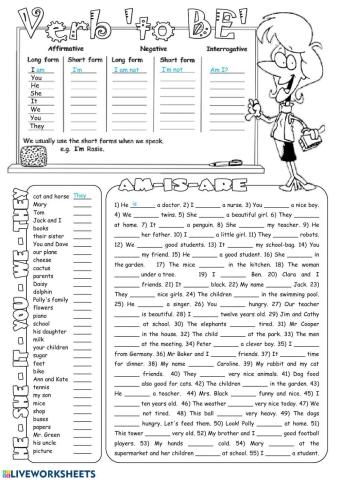 Verb 'to BE'
Affirmative Negative Interrogative
Long form Short form Long form Short form
I am I'm I am not I'm not Am I?
You
He
She
It
We
You
They
We usually use the short forms when we speak.
e.g. I'm Rosie.
HE-SHE-IT-YOU-WE-THEY
cat and horse They
Mary
Tom
Jack and I
books
their sister
You and Dave
our plane
cheese
cactus
parents
Daisy
dolphin
Polly's family
flowers
piano
school
his daughter
milk
your children
sugar
feet
bike
Ann and Kate
tennis
my son
shop
buses
papers
Mr. Green
his uncle
picture
AM-IS-ARE
1) He is a doctor. 2) I a nurse. 3) You a nice boy.
4) We twins. 5) She a beautiful girl. 6) They
at home. 7) It a penguin. 8) She my teacher. 9) He
her father. 10) I a little girl. 11) They robots.
12) We good students. 13) It my school-bag. 14) You
my friend. 15) He a good student. 16) She in
the garden. 17) The mice in the kitchen. 18) The woman
under a tree. 19) I Ben. 20) Clara and I
friends. 21) It black. 22) My name Jack. 23)
They nice girls. 24) The children in the swimming pool.
25) He a singer. 26) You hungry. 27) Our teacher
is beautiful. 28) I twelve years old. 29) Jim and Cathy
at school. 30) The elephants tired. 31) Mr Cooper
in the house. 32) The child at the park. 33) The men
at the meeting. 34) Peter a clever boy. 35) I
from Germany. 36) Mr Beker and I friends. 37) It time
for dinner. 38) My name Caroline. 39) My rabbit and my cat
friends. 40) They very nice animals. 41) Dog food
also good for cats. 42) The children in the garden. 43)
He a teacher. 44) Mrs. Black funny and nice. 45) I
ten years old. 46) The weather very nice today. 47) We
not tired. 48) This ball very heavy. 49) The dogs
hungry. Let's feed them. 50) Look! Polly at home. 51)
This tower very old. 52) My brother and I good football
players. 53) My hands cold. 54) Mary at the
supermarket and her children at school. 55) I a student.
LIVEWORKSHEETS